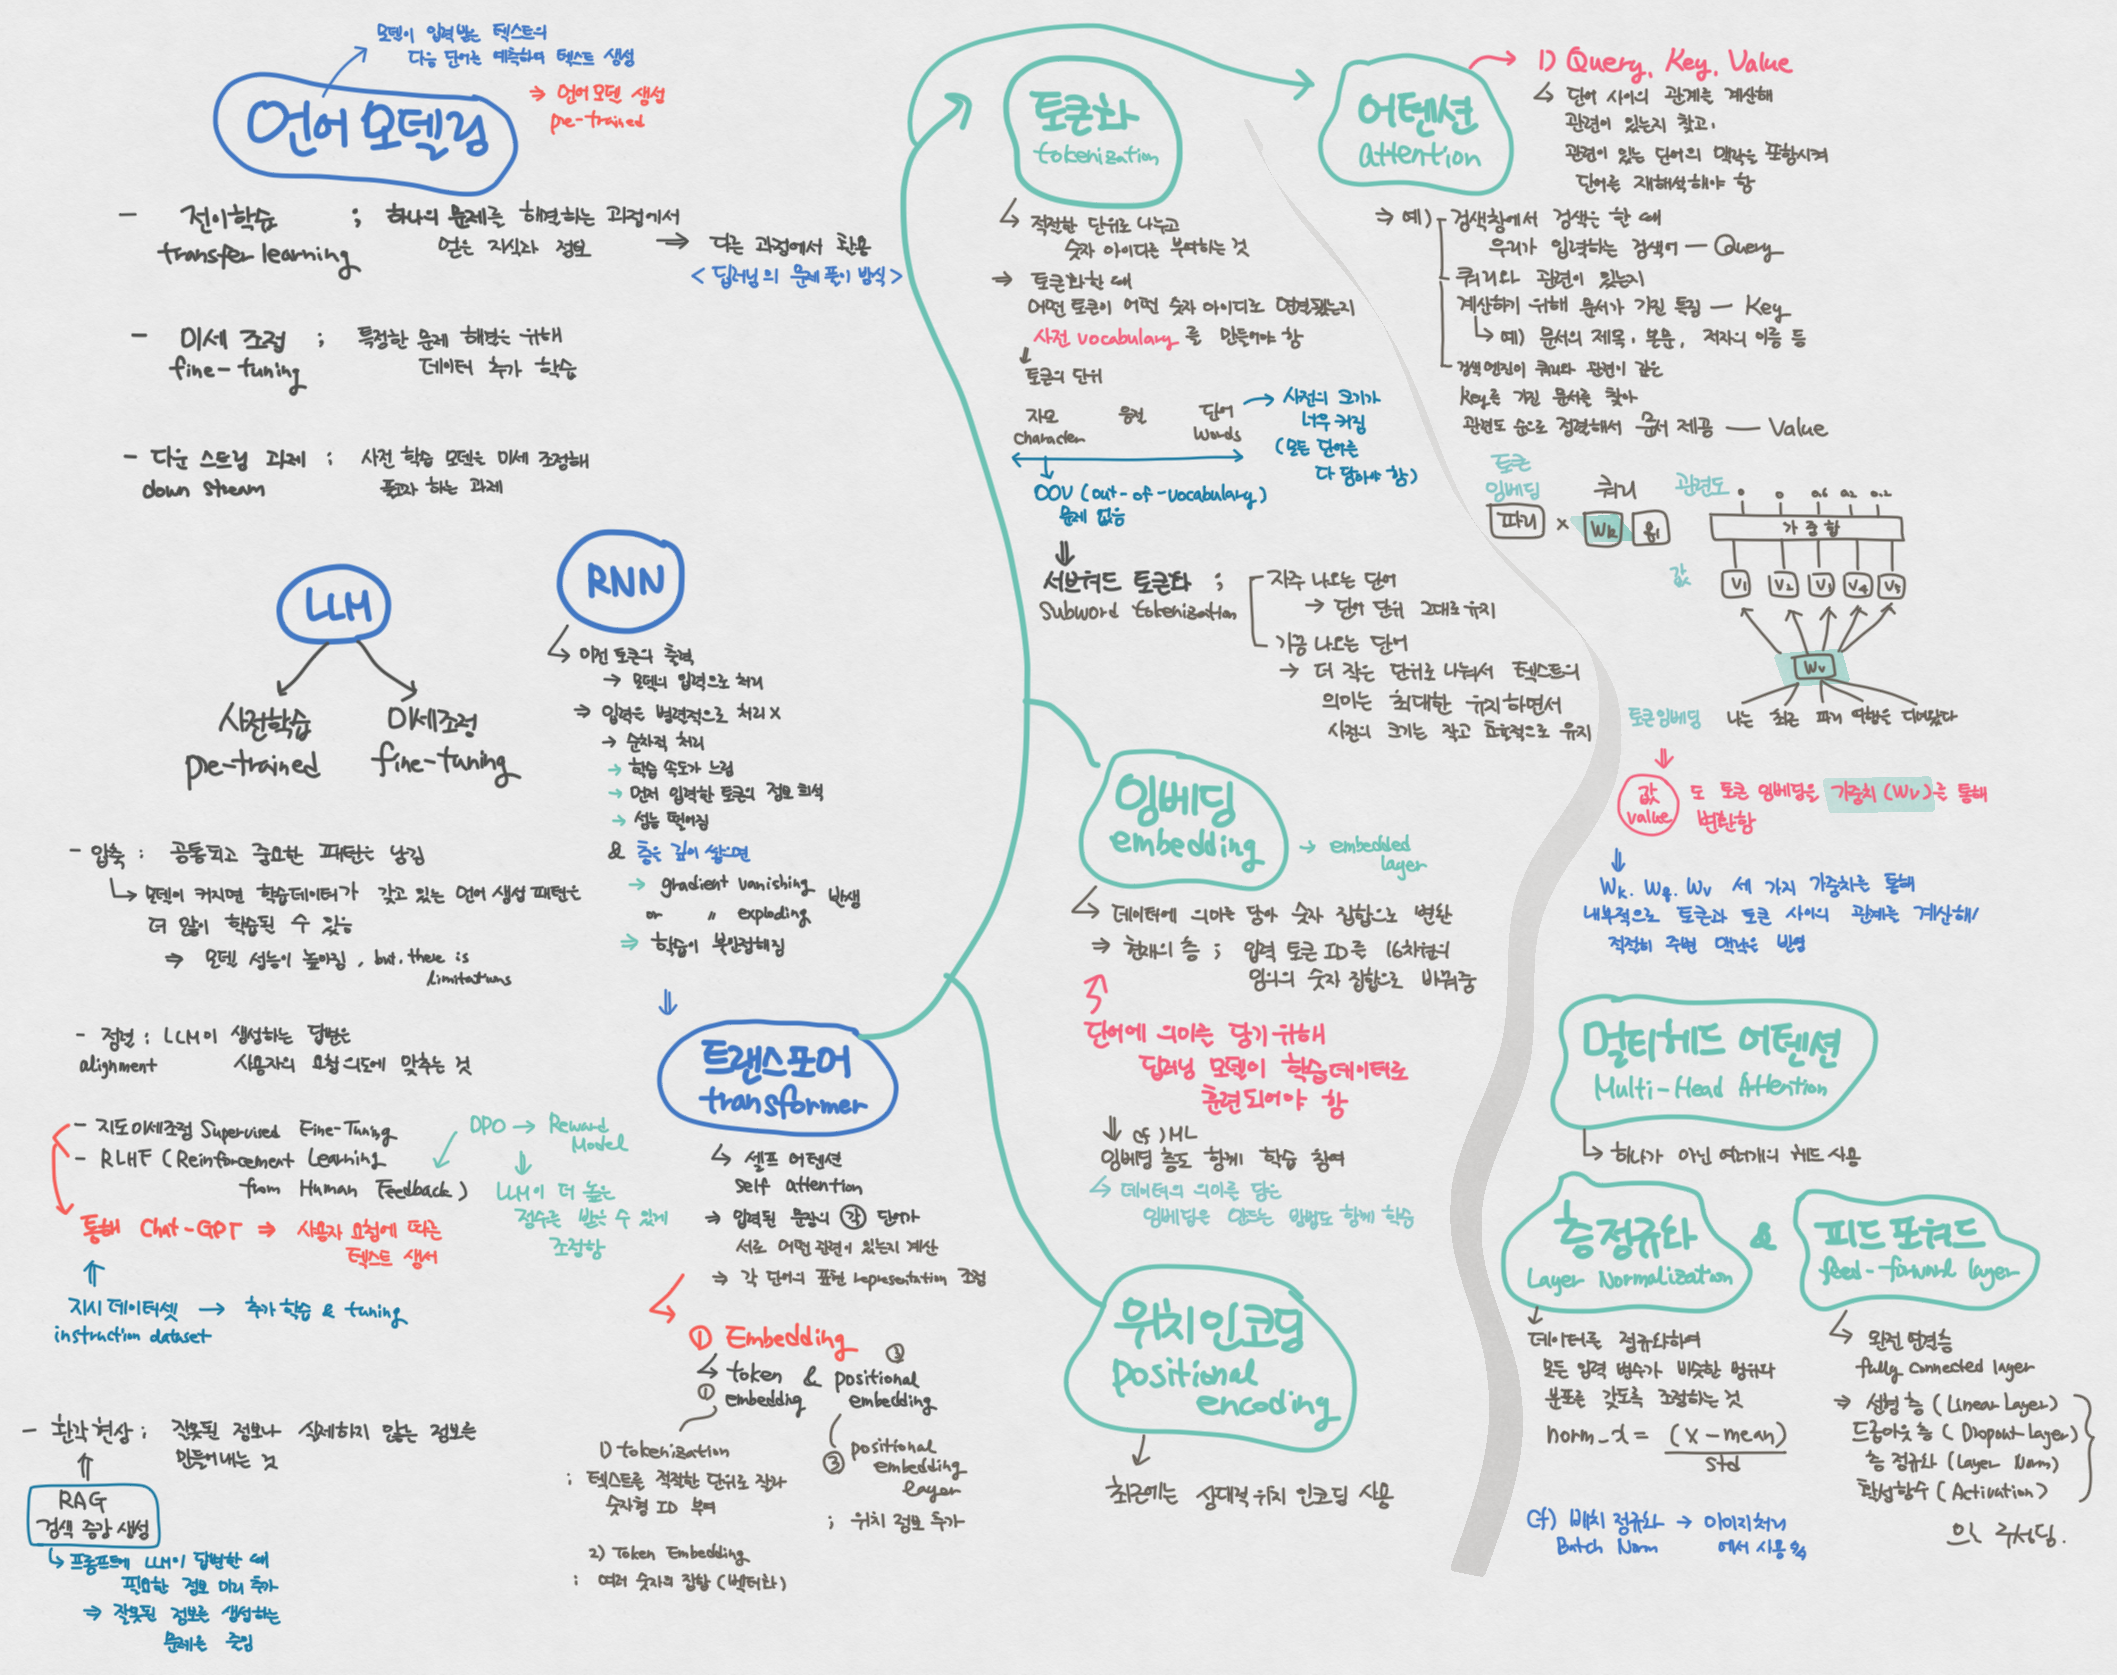 모델이 입력받는 텍스트의
다음 단어를 예측하여 텍스트 생성
언어 모델링
⇒ 언어 모델 생성
pre-trained
- 전이학습 ; 하나의 문제를 해결하는 과정에서
transfer learning 얻은 지식과 정보 ⇒ 다른 과정에서 활용
<딥러닝의 문제 풀이 방식>
- 미세 조정 ; 특정한 문제 해결을 위해
fine-tuning 데이터 추가 학습
- 다운 스트림 과제 : 사전 학습 모델을 미세 조정해
down stream 풀고자 하는 과제
LLM
사전학습 미세조정
pre-trained fine-tuning
- 압축 : 공통되고 중요한 패턴을 남김
↳ 모델이 커지면 학습데이터가 갖고 있는 언어 생성 패턴을
더 많이 학습할 수 있음
⇒ 모델 성능이 높아짐, but, there is
limitations
- 정렬 : LLM이 생성하는 답변을
alignment 사용자의 요청 의도에 맞추는 것
- 지도미세조정 Supervised Fine-Tuning
- RLHF (Reinforcement Learning
from Human Feedback)
DPO → Reward
Model
⇓
LLM이 더 높은
점수를 받을 수 있게
조정함
통해 Chat-GPT ⇒ 사용자 요청에 따른
텍스트 생성
⇑
지시 데이터셋 → 추가 학습 & tuning
instruction dataset
- 환각 현상 ; 잘못된 정보나 실제하지 않는 정보를
만들어 내는 것
⇑
RAG
검색 증강 생성
↳ 프롬프트에 LLM이 답변할 때
필요한 정보 미리 추가
⇒ 잘못된 정보를 생성하는
문제를 줄임
RNN
↳ 이전 토큰의 출력
→ 모델의 입력으로 처리
⇒ 입력을 병렬적으로 처리 X
→ 순차적 처리
→ 학습 속도가 느림
→ 먼저 입력한 토큰의 정보 희석
→ 성능 떨어짐
& 층을 깊이 쌓으면
→ gradient vanishing
or 〃 exploding 발생
⇒ 학습이 불안정해짐
⇓
트랜스포머
transformer
↳ 셀프 어텐션
self attention
⇒ 입력된 문장의 각 단어가
서로 어떤 관련이 있는지 계산
⇒ 각 단어의 표현 representation 조정
① Embedding
↳ token & positional ②
① embedding embedding
1) tokenization
; 텍스트를 적절한 단위로 잘라
숫자형 ID 부여
2) Token Embedding
; 여러 숫자의 집합 (벡터화)
③ positional
embedding
layer
; 위치 정보 추가
토큰화
tokenization
↳ 적절한 단위로 나누고
숫자 아이디를 부여하는 것
⇒ 토큰화할 때
어떤 토큰이 어떤 숫자 아이디로 연결됐는지
사전 vocabulary 를 만들어야 함
↓
토큰의 단위
자모 음절 단어
character words
→ 사전의 크기가
너무 커짐
(모든 단어를
다 담아야 함)
OOV (out-of-vocabulary)
문제 없음
⇓
서브워드 토큰화 ;
Subword tokenization
자주 나오는 단어
→ 단어 단위 그대로 유지
가끔 나오는 단어
→ 더 작은 단위로 나눠서 텍스트의
의미를 최대한 유지하면서
사전의 크기를 작고 효율적으로 유지
임베딩
embedding → embedded
layer
↳ 데이터에 의미를 담아 숫자 집합으로 변환
⇒ 현재의 층 ; 입력 토큰 ID를 16차원의
임의의 숫자 집합으로 바꿔줌
단어에 의미를 담기 위해
딥러닝 모델이 학습데이터로
훈련되어야 함
⇓ cf) ML
임베딩 층도 함께 학습 참여
↳ 데이터의 의미를 담은
임베딩을 만드는 방법도 함께 학습
위치 인코딩
positional
encoding
최근에는 상대적 위치 인코딩 사용
어텐션
attention
1) Query, Key, Value
↳ 단어 사이의 관계를 계산해
관련이 있는지 찾고,
관련이 있는 단어의 맥락을 포함시켜
단어를 재해석해야 함
⇒ 예) 검색창에서 검색을 할 때
우리가 입력하는 검색어 — Query
쿼리와 관련이 있는지
계산하기 위해 문서가 가진 특징 — Key
↳ 예) 문서의 제목, 본문, 저자의 이름 등
검색 엔진이 쿼리와 관련이 깊은
key를 가진 문서를 찾아
관련도 순으로 정렬해서 문서 제공 — Value
토큰
임베딩 쿼리 관련도 0 0 0.6 0.2 0.2
파리 × Wk 가중합
값 V1 V2 V3 V4 V5
Wv
토큰임베딩 나는 최근 파리 여행을 다녀왔다
⇓
값
value
도 토큰 임베딩을 가중치(Wv)를 통해
변환함
⇓
Wk, Wq, Wv 세 가지 가중치를 통해
내부적으로 토큰과 토큰 사이의 관계를 계산해/
적절히 주변 맥락을 반영
멀티헤드 어텐션
Multi-Head Attention
↳ 하나가 아닌 여러개의 헤드 사용
층 정규화
Layer Normalization
&
피드 포워드
feed-forward layer
데이터를 정규화하여
모든 입력 변수가 비슷한 범위와
분포를 갖도록 조정하는 것
norm_x = (x - mean)
std
cf) 배치 정규화 → 이미지처리
Batch Norm 에서 사용
↳ 완전 연결층
fully connected layer
⇒ 선형 층 (Linear Layer)
드롭아웃 층 (Dropout Layer)
층 정규화 (Layer Norm)
활성함수 (Activation)
으로 구성됨.